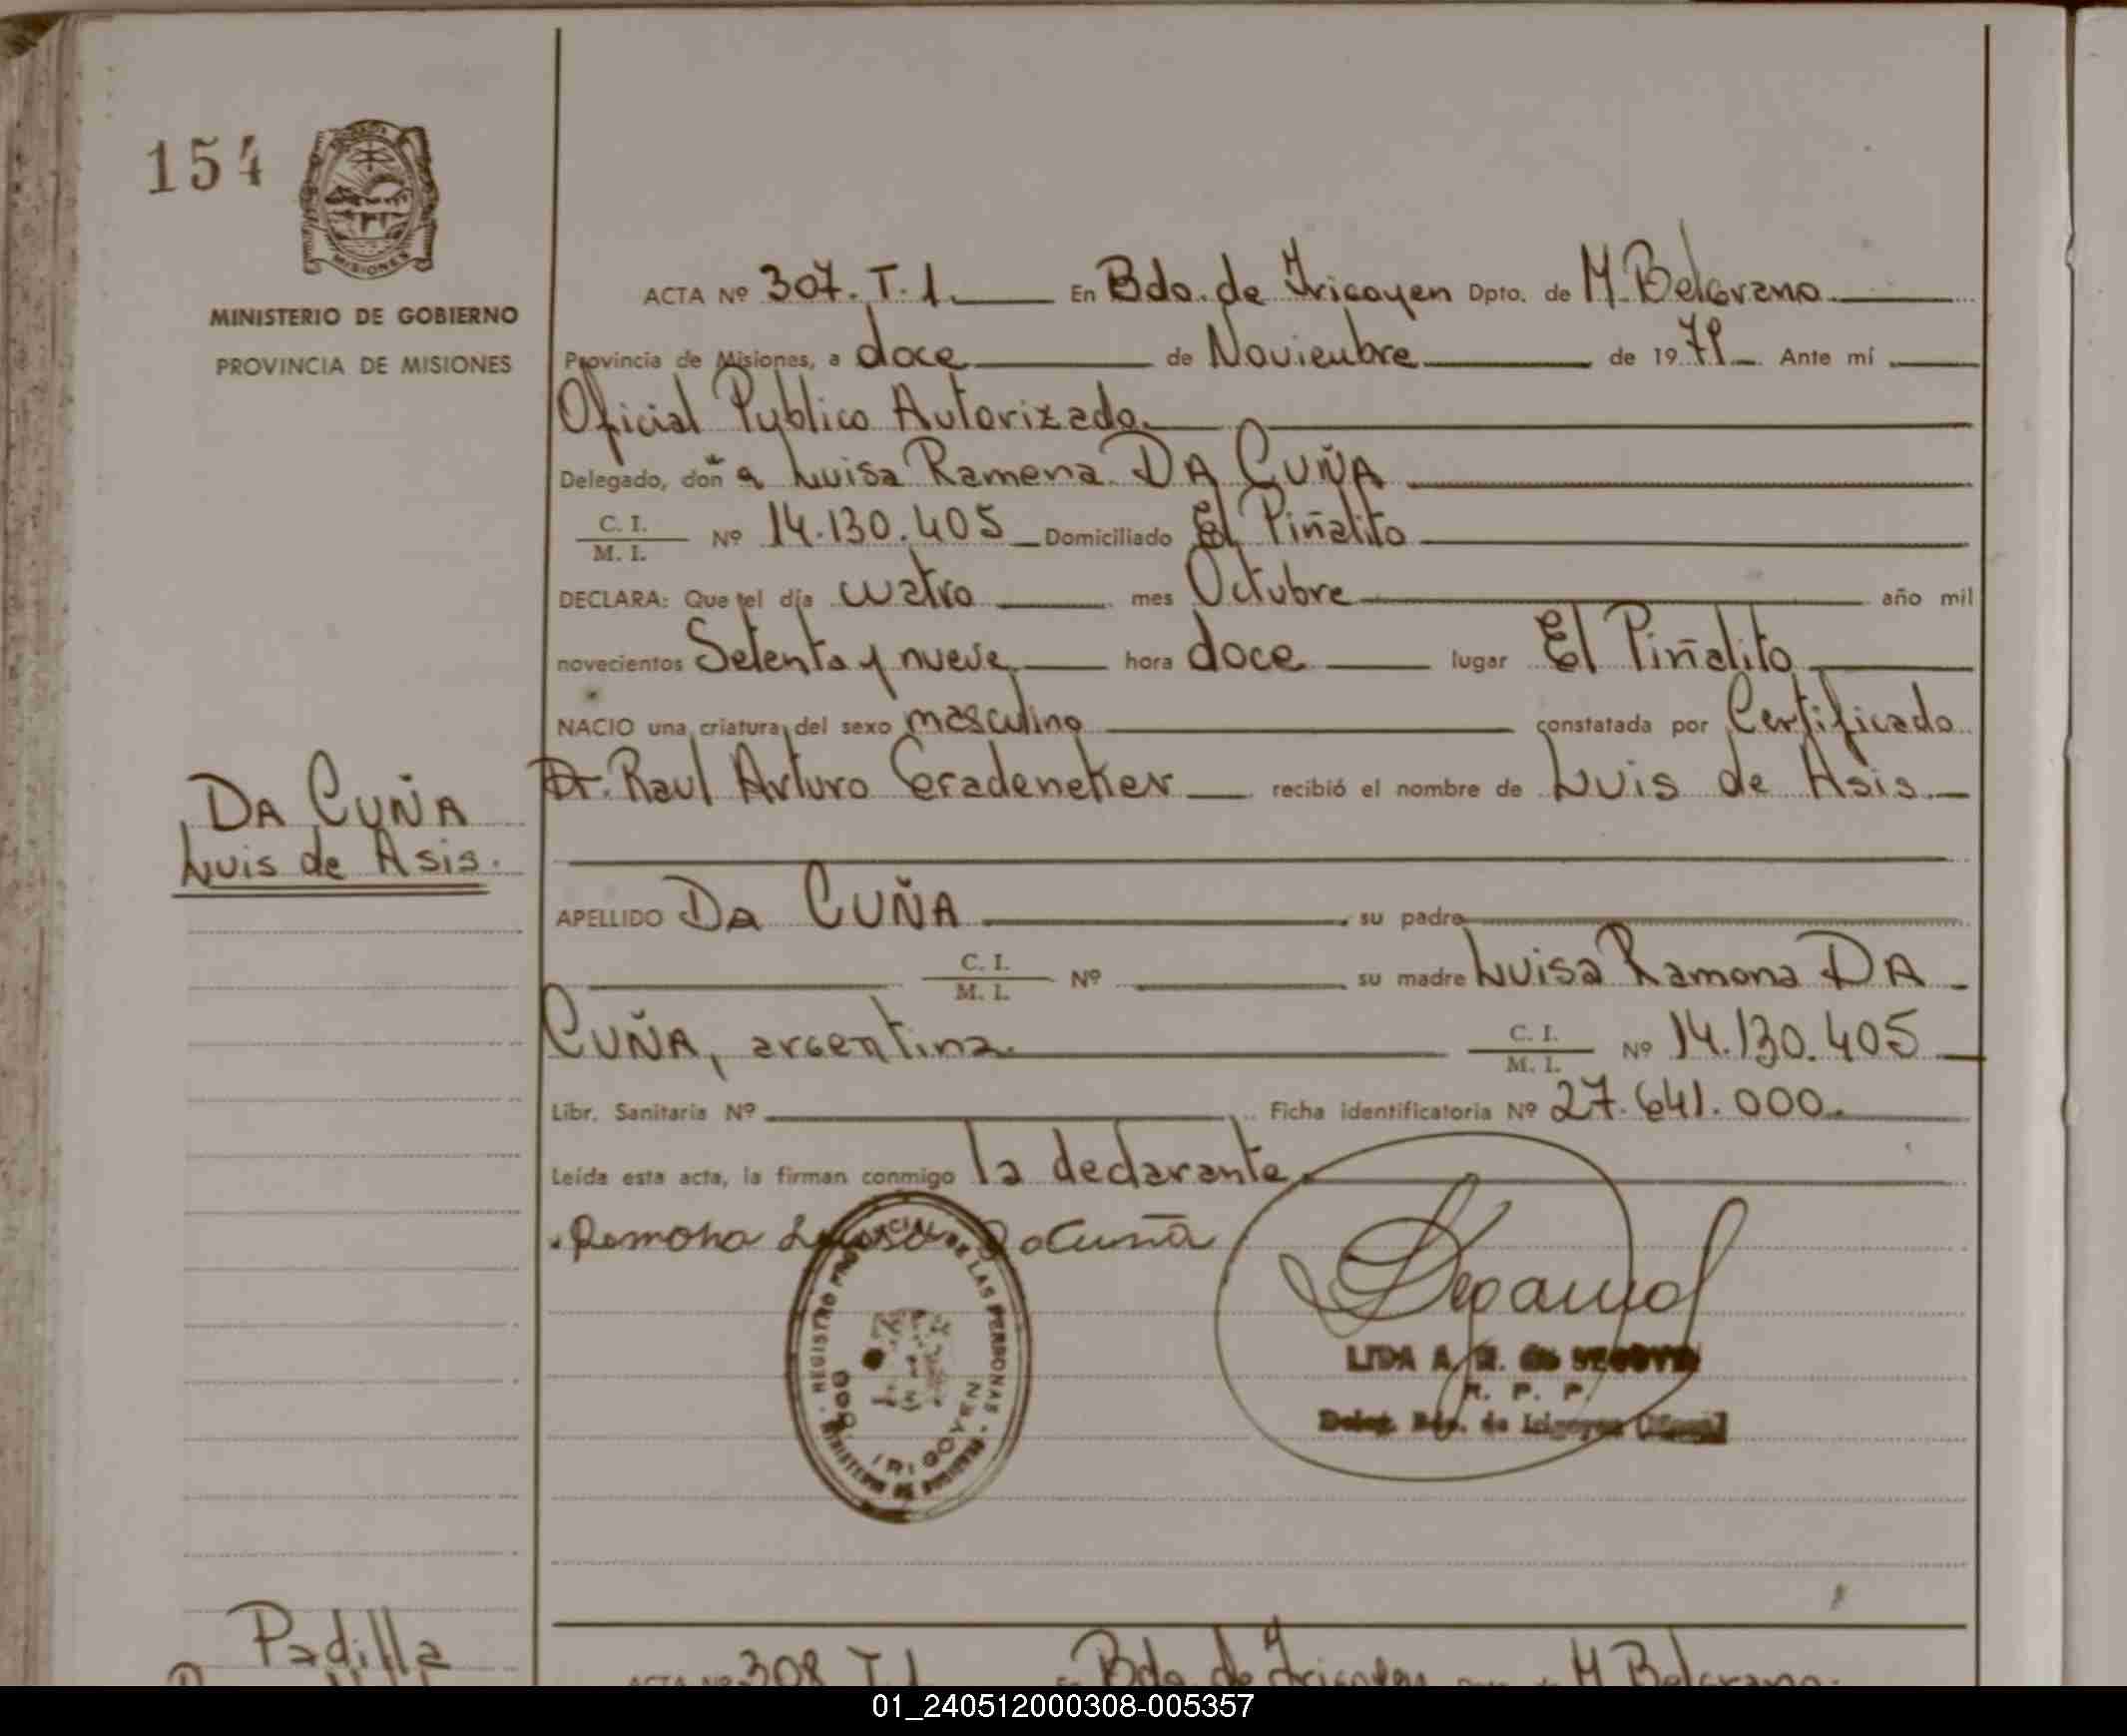 154
MISIONES
MINISTERIO DE GOBIERNO
PROVINCIA DE MISIONES
ACTA Nº 307. T. 1. En Bdo. de Irigoyen Dpto. de M. Belgrano
Provincia de Misiones, a doce de Noviembre de 1979 Ante mí
Oficial Publico Autorizado
Delegado, doñ a Luisa Ramona DA CUÑA
C. I.
M. I. Nº 14.130.405 Domiciliado El Piñalito
DECLARA: Que el día cuatro mes Octubre año mil
novecientos Setenta y nueve hora doce lugar El Piñalito
NACIO una criatura del sexo masculino constatada por Certificado
Dr. Raul Arturo recibió el nombre de Luis de Asis
DA CUÑA
Luis de Asis.
APELLIDO DA CUÑA su padre
C. I.
M. I. Nº su madre Luisa Ramona DA
CUÑA, argentina. C. I.
M. I. Nº 14.130.405
Libr. Sanitaria Nº Ficha identificatoria Nº 27.641.000.
Leída esta acta, la firman conmigo la declarante
Ramona Luisa DaCuña
REGISTRO PROVINCIAL DE LAS PERSONAS
MINISTERIO DE GOBIERNO
BDO. IRIGOYEN
LIDA A.
R. P. P.
Deleg. Bdo. de Irigoyen
Padilla
ACTA Nº 308 T. 1 En Bdo. de Irigoyen Dpto. de M Belgrano.
01_240512000308-005357